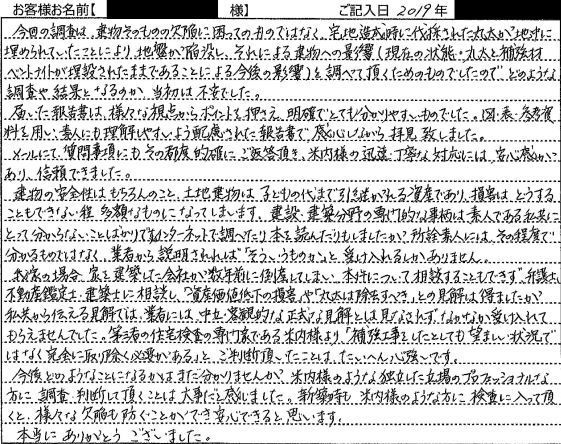 お客様お名前【 様】 ご記入日 2019年
今回の調査は、建物そのものの欠陥に困ってのものではなく、宅地造成時に伐採された丸太が地中に
埋められていたことにより、地盤が陥没し、それによる建物への影響(現在の状態・丸太と補強材
ベントナイトが埋設されたままであることによる今後の影響)を調べて頂くためのものでしたので、どのような
調査や結果となるのか、当初は不安でした。
届いた報告書は、様々な視点からポイントを押さえ、明確でとても分かりやすいものでした。図・表・参考資
料を用い、素人にも理解しやすいよう配慮された報告書で、感心しながら拝見致しました。
メールにて、質問事項にもその都度的確にご返答頂き、米内様の迅速・丁寧な対応には、安心感が
あり、信頼できました。
建物の安全性はもちろんのこと、土地建物は子どもの代まで引き継がれる資産であり、損害はどうする
こともできない程多額なものになってしまいます。建設・建築分野の専門的な事柄は素人である私共に
とって分からないことばかりで、インターネットで調べたり本を読んだりもしましたが、所詮素人には、その程度で
分かるものではなく、業者から説明されれば“そういうものか”と受け入れるしかありません。
お宅の場合、家を建築した会社が数年前に倒産してしまい、本件について相談することもできず、弁護士、
不動産鑑定士・建築士に相談し、「資産価値低下の損害」や「丸太は除去すべき」との見解は得ましたが、
私共から伝える見解では、業者には、中立・客観的な正式な見解とは見なされず、なかなか受け入れて
もらえませんでした。第三者の住宅検査の専門家である米内様より、「補強工事をしたとしても望ましい状況で
はなく完全に取り除く必要がある」と、ご判断頂したことは、たいへん心強いです。
今後どのようなことになるかはまだ分かりませんが、米内様のような独立した立場のプロフェッショナルな
方に調査・判断して頂くことは大事だと感じました。新築時も米内様のような方に検査に入って頂
くと、様々な欠陥も防ぐことができ安心できると思います。
本当にありがとうございました。